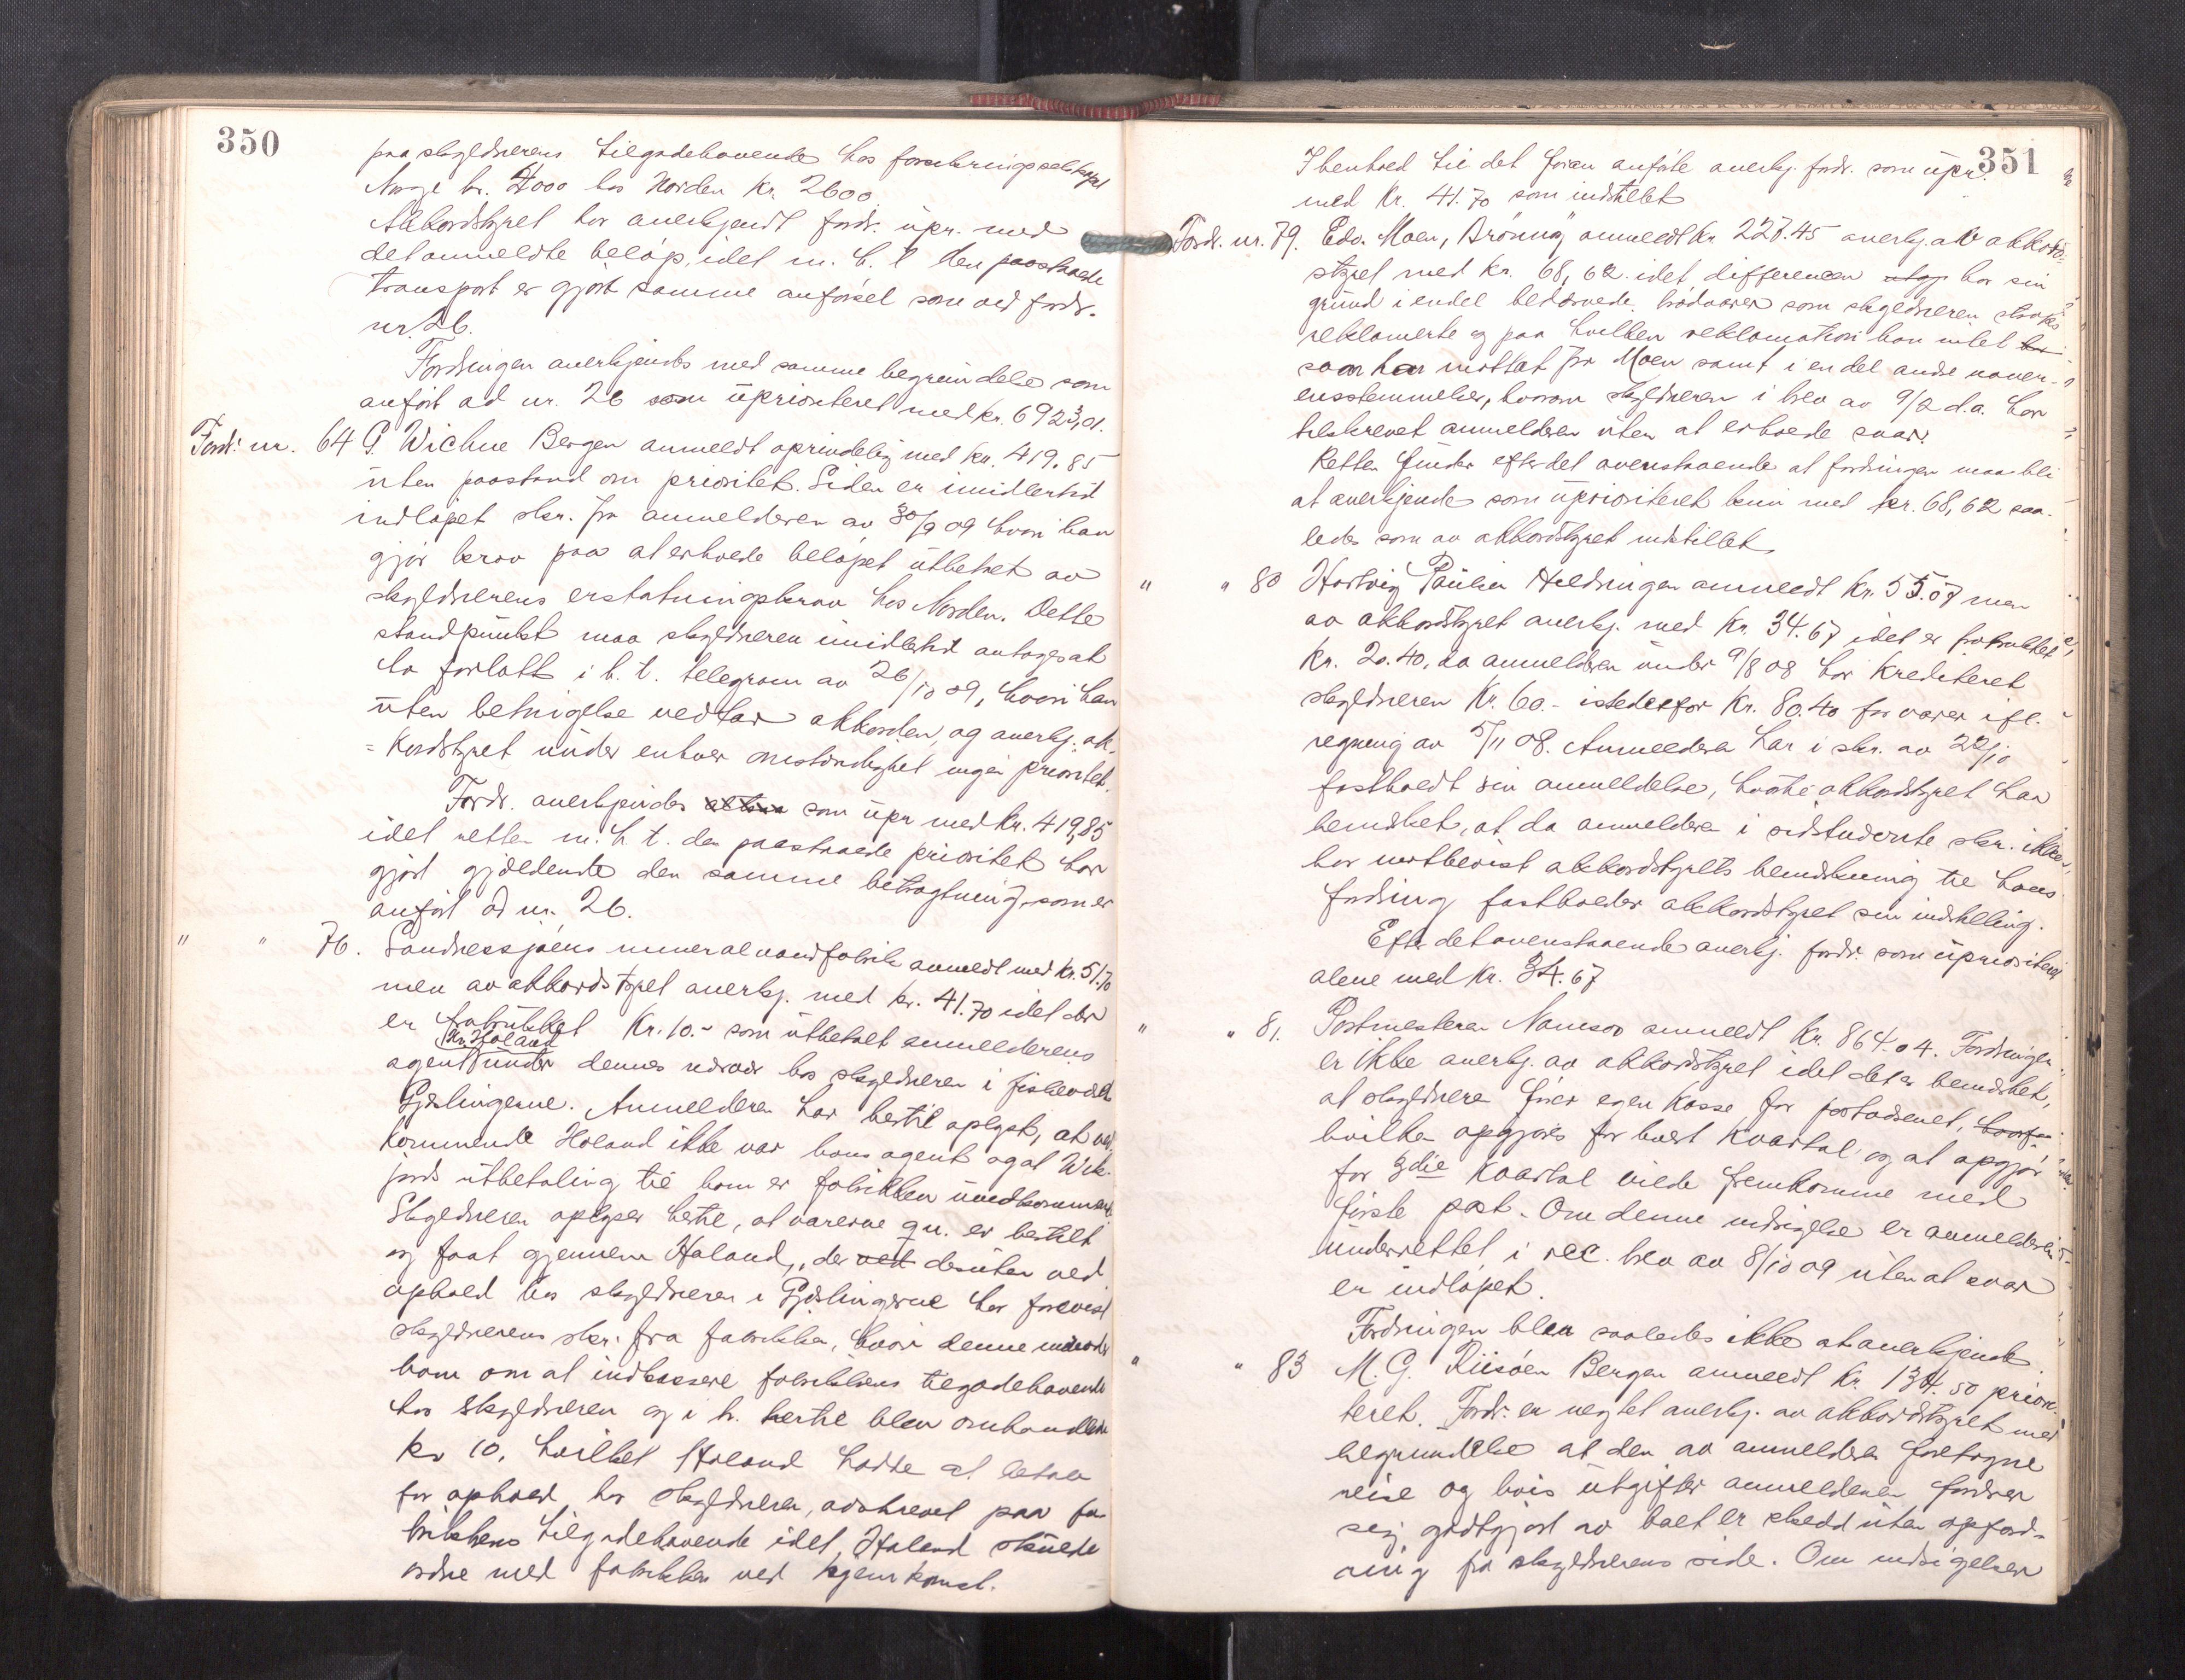 350
paa skyldnerens tilgodehavende hos forsikringsselskapet
Norge kr. 4000 hos Norden Kr. 2600.
Akkordstyret har anerkjendt fordr. upr. med
det anmeldte beløp, idet m. h. t. den paastaaede
transport er gjort samme anførsel som ved fordr.
nr. 26.
Fordringen anerkjendes med samme begrundelse som
anført ad nr. 26 som uprioriteret med kr. 6923,01.
Fordr. nr. 64 G. Wichne Bergen anmeldt oprindelig med Kr. 419.85
uten paastand om prioritet. Siden er imidlertid
indløpet skr. fra anmelderen av 30/9 09 hvori han
gjør krav paa at erholde beløpet utbetalt av
skyldnerens erstatningskrav hos Norden. Dette
standpunkt maa skyldneren imidlertid antages at
ha forlatt i h. t. telegram av 26/10 09, hvori han
uten betingelse vedtar akkorden, og anerkj. ak-
= kordstyret under enhver omstændighet ingen prioritet.
Fordr. anerkjendes som upr med Kr. 419,85
idet retten m. h. t. den paastaaede prioritet har
gjort gjældende den samme betragtning som er
anført ad nr. 26.
" " 76. Sandnessjøens mineralvandfabrik anmeldt med Kr. 51.70
men av akkordstyret anerkj. med kr. 41.70 idet der
er fratrukket Kr. 10.- som utbetalt anmelderens
Kr. Holand
agent under dennes nærvær hos skyldneren i fiskeværet
Gjæslingerne. Anmelderen har hertil oplyst, at ved-
kommende Holand ikke var hans agent og at Wik-
jords utbetaling til ham er fabrikken uvedkommende.
Skyldneren oplyser hertil, at varerne qu. er bestilt
og faat gjennem Haland, der ved desuten ved
ophold hos skyldneren i Gjæslingerne har forevist
skyldneren skr. fra fabrikken, hvori denne
ham om at indkassere fabrikkens tilgodehavende
hos skyldneren og i h. hertil blev omhandlede
kr 10, hvilket Holand hadde at betale
for ophold hos skyldneren, avskrevet paa fa-
brikkens tilgodehavende idet Haland skulde
ordne med fabrikken ved hjemkomst.
351
I henhold til det foran anførte anerkj. fordr. som upr.
med Kr. 41.70 som indstillet
Fordr. nr. 79. Edv. Moen, Brönnö anmeldt Kr. 227.45 anerkj. av akkord-
styret med kr. 68,62 idet differencen har sin
grund i endel bedærvede brødvarer som skyldneren straks
reklamerte og paa hvilken reklamation han intet
svar har mottat fra Moen samt i en del andre uover-
ensstemmelser, hvorom skyldneren i brev av 9/2 d.a. har
tilskrevet anmelderen uten at erholde svar.
Retten finder efter det ovenstaaende at fordringen maa bli
at anerkjende som uprioriteret kun med kr. 68,62 saa-
ledes som av akkordstyret indstillet.
" " 80 Hartvig Paulsen Heldringen anmeldt Kr. 55.07 men
av akkordstyret anerkj. med Kr. 34.67 idet er fratrukket
Kr. 20.40, da anmelderen under 9/8 08 har krediteret
skyldneren Kr. 60.- istedetfor Kr. 80.40 for varer ifl.
regning av 5/11 08. Anmelderen har i skr. av 22/10
fastholdt sin anmeldelse, hvortil akkordstyret har
bemerket, at da anmelderen i sidstnævnte skr. ikke
har motbevist akkordstyrets bemerkning til hans
fordring fastholder akkordstyret sin indstilling.
Efter det ovenstaaende anerkj. fordr. som uprioriteret
alene med Kr. 34.67
" " 81. Postmesteren Namsos anmeldt Kr. 864.04. Fordringen
er ikke anerkj. av akkordstyret idet det er bemerket,
at skyldneren fører egen kasse for postvæsenet,
hvilken opgjøres for hvert kvartal og at opgjør
for 3die Kvartal vilde fremkomme med
første post. Om denne indsigelse er anmelderen
underrettet i rec. brev av 8/10 09 uten at svar
er indløpet.
Fordringen blev saaledes ikke at anerkjende.
" " 83 M. G. Riisøen Bergen anmeldt Kr. 134.50 priori-
teret. Fordr. er negtet anerkj. av akkordstyret med
begrundelse at den av anmelderen foretagne
reise og hvis utgifter anmelderen fordrer
sig godtgjort av boet er skedd uten opford-
ring fra skyldnerens side. Om indsigelsen